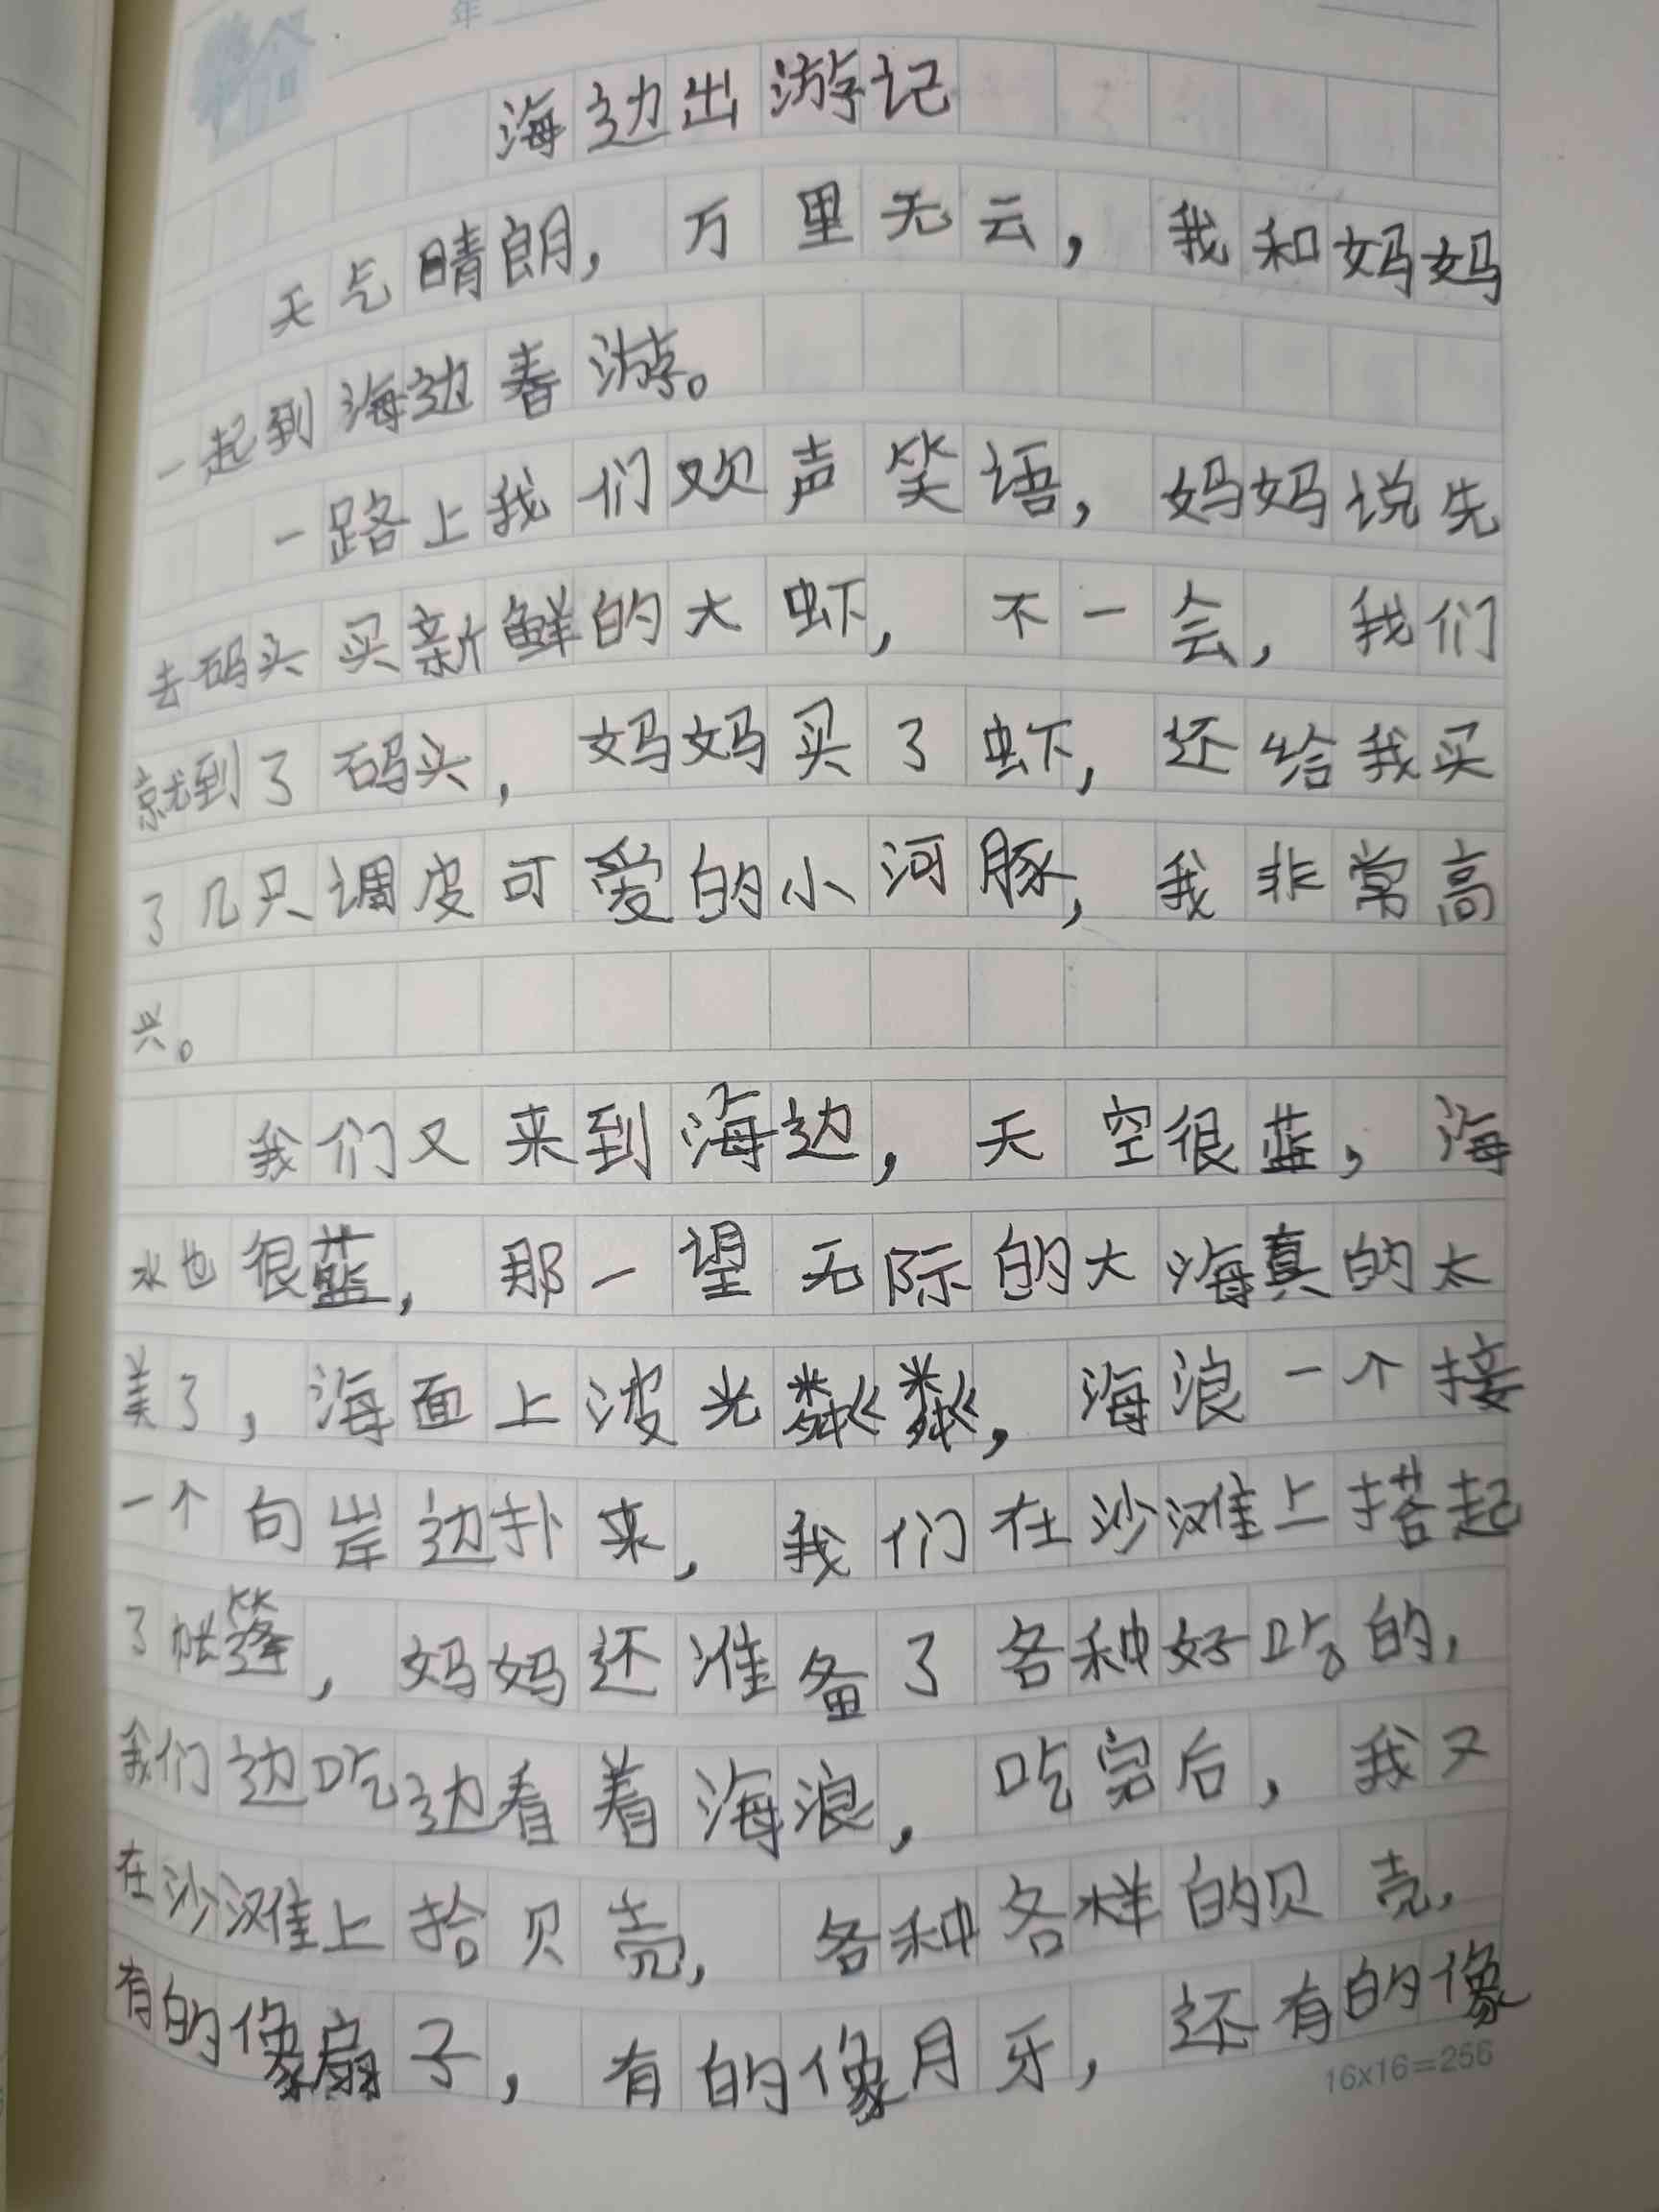 年
海边出游记
天气晴朗，万里无云，我和妈妈
一起到海边春游。
一路上我们欢声笑语，妈妈说先
去码头买新鲜的大虾，不一会，我们
就到了码头，妈妈买了虾，还给我买
了几只调皮可爱的小河豚，我非常高
兴。
我们又来到海边，天空很蓝，海
水也很蓝，那一望无际的大海真的太
美了，海面上波光粼粼，海浪一个接
一个向岸边扑来，我们在沙滩上搭起
了帐篷，妈妈还准备了各种好吃的，
我们边吃边看着海浪，吃完后，我又
在沙滩上拾贝壳，各种各样的贝壳，
有的像扇子，有的像月牙，还有的像
16x16=256